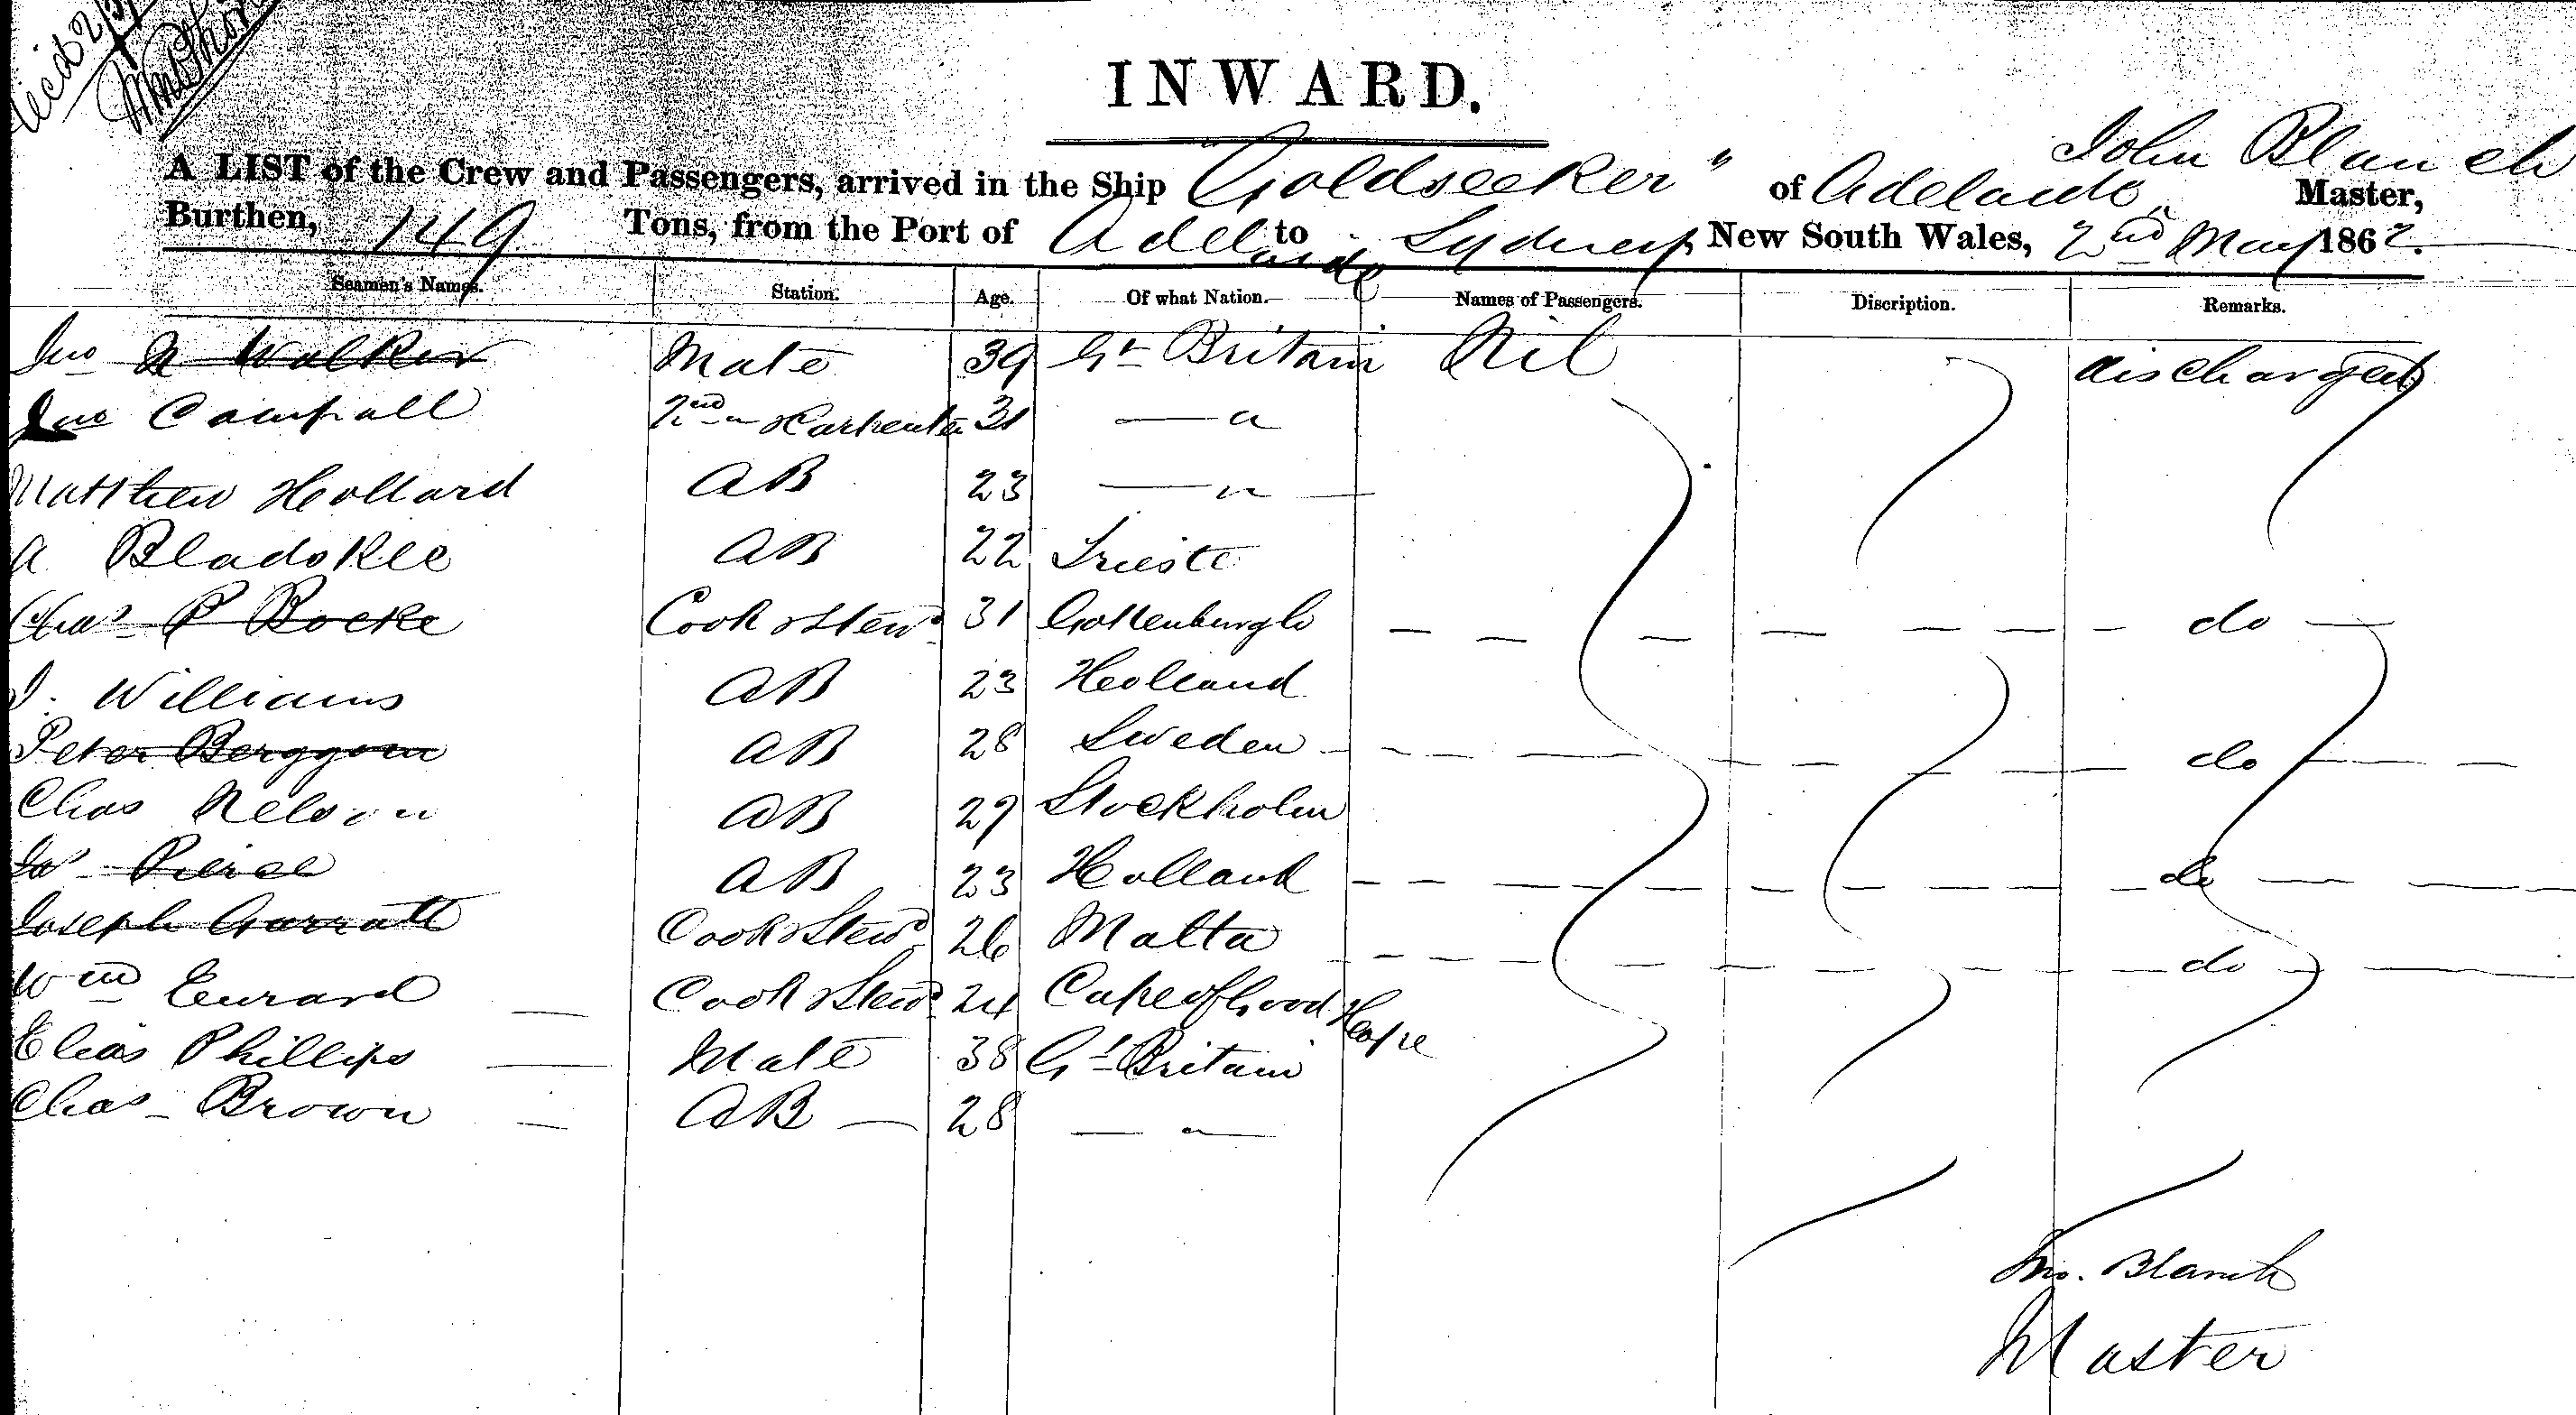 Rec'd
INWARD.
A LIST of the Crew and Passengers, arrived in the Ship "Goldseeker" of Adelaide John Blanch Master,
Burthen, 149 Tons, from the Port of Adelaide to Sydney New South Wales, 2nd May 1862.
Seamen's Names. Station. Age. Of what Nation. Names of Passengers. Discription. Remarks.
Jno N Walker Mate 39 Gt Britain Nil discharged
Jno Campall 2nd " & Carpenter 31 — " —
Matthew Hollard AB 23 — " —
A Bladskee AB 22 Trieste
Chas P Bocke Cook & Stewd 31 Gottenburgh do
J. Williams AB 23 Holland
Peter Berggom AB 28 Sweden do
Chas Nelson AB 29 Stockholm
Jas Peirce AB 23 Holland do
Joseph Garratt Cook & Stewd 26 Malta do
Wm Eurard Cook & Stewd 24 Cape of Good Hope
Elias Phillips Mate 38 Gt Britain
Chas Brown AB — 28 — " —
Jno. Blanch
Master